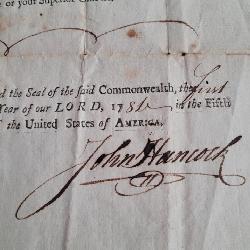 or your Superior
d the Seal of the said Commonwealth, the First
Year of our LORD, 178 in the Fifth
the United States of AMERICA.
John Hancock